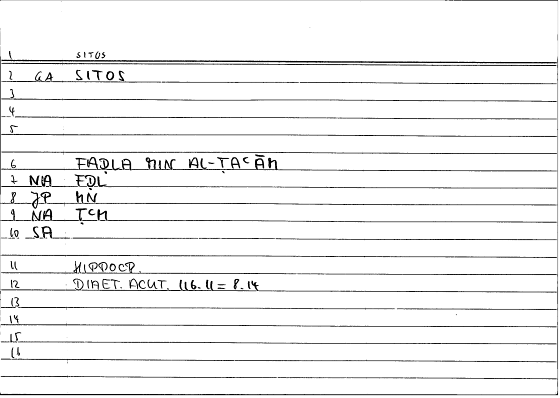 1 SITOS
2 GA SITOS
3
4
5
6 FAḌLA MIN AL-ṬAᶜĀM
7 NA FḌL
8 JP MN
9 NA ṬᶜM
10 SA
11 HIPPOCR.
12 DIAET. ACUT. 116.11 = 8.14
13
14
15
16